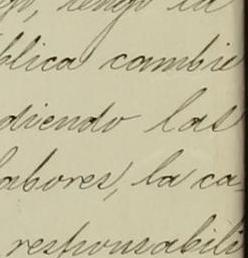 go, tengo la
blica cambie
diendo las
labores, la ca
responsabili